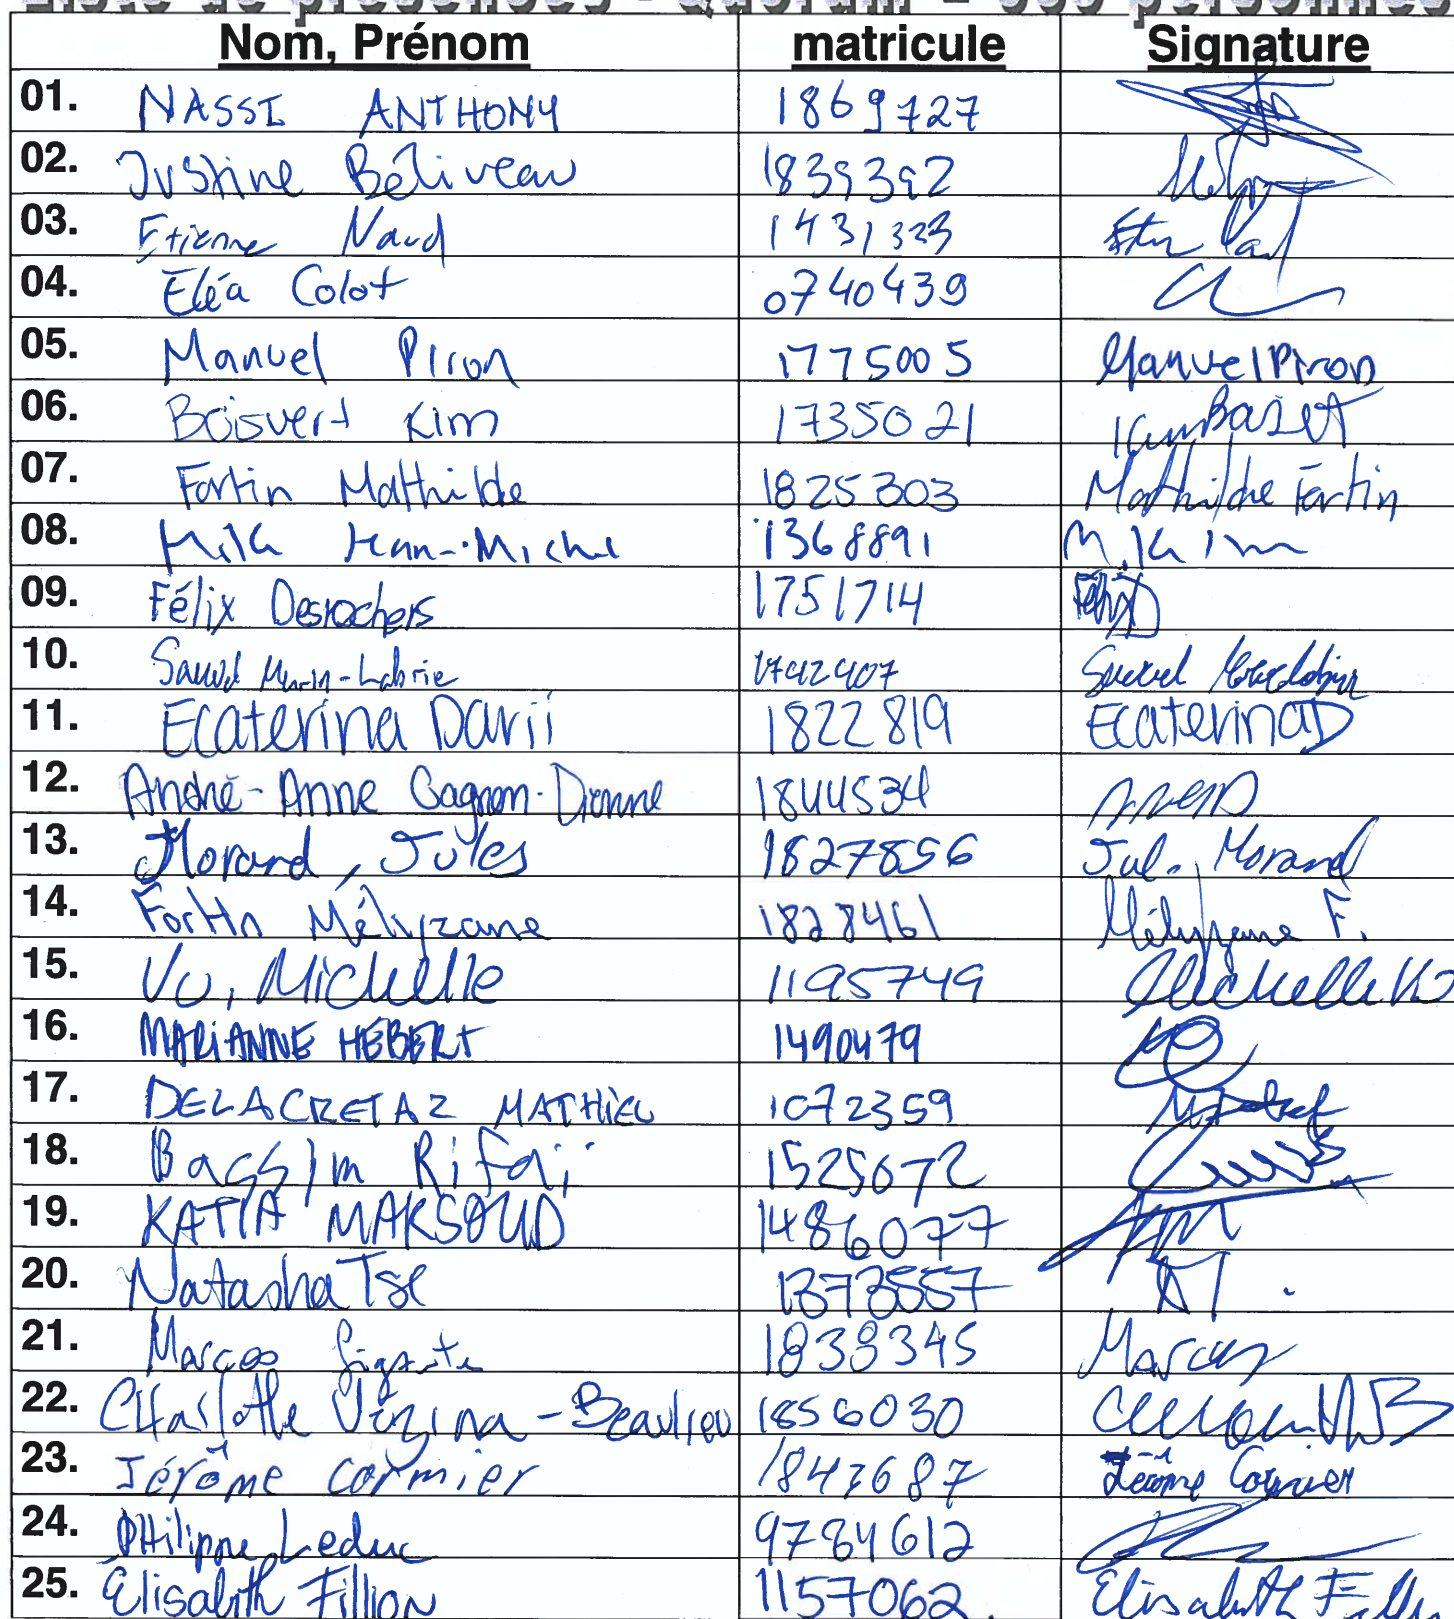 Liste de présences - Quorum - 500 personnes
Nom, Prénom matricule Signature
01. NASSI ANTHONY 1869727
02. Justine Béliveau 1839392
03. Etienne Naud 1431323
04. Eléa Colot 0740439
05. Manuel Piron 1775005 Manuel Piron
06. Boisvert Kim 1735021 Kim
07. Fortin Mathilde 1825303 Mathilde Fortin
08. 1368891
09. Félix Desrochers 1751714
10. -Labrie 1742407
11. Ecaterina Darii 1822819 Ecaterina D
12. André-Anne Gagnon-Dionne 1844534
13. Morand, Jules 1827856 Jul. Morand
14. Fortin Mélyzane 1828461 Mélyzane F.
15. Vu, Michelle 1195749 Michelle Vu
16. MARiANNE HÉBERT 1490479
17. DELACRETAZ MATHIEU 1072359
18. Bassim Rifai 1525672
19. KATIA MAKSOUD 1486077
20. Natasha Tse 1373557 NT.
21. Marcos Gigante 1839345 Marcos
22. Charlotte Vézina-Beaulieu 1856030
23. Jérôme Cormier 1843687 Jérôme Cormier
24. Philippe Leduc 9784612
25. Elisabeth Fillion 1157062 Elisabeth